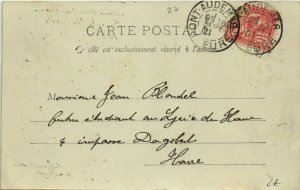 27
CARTE POSTALE
Ce côté est exclusivement réservé à l'adresse
PONT-AUDEMER
EURE
Monsieur Jean Blondel
futur étudiant au Lycée du Havre
4 impasse Dagobert
Havre